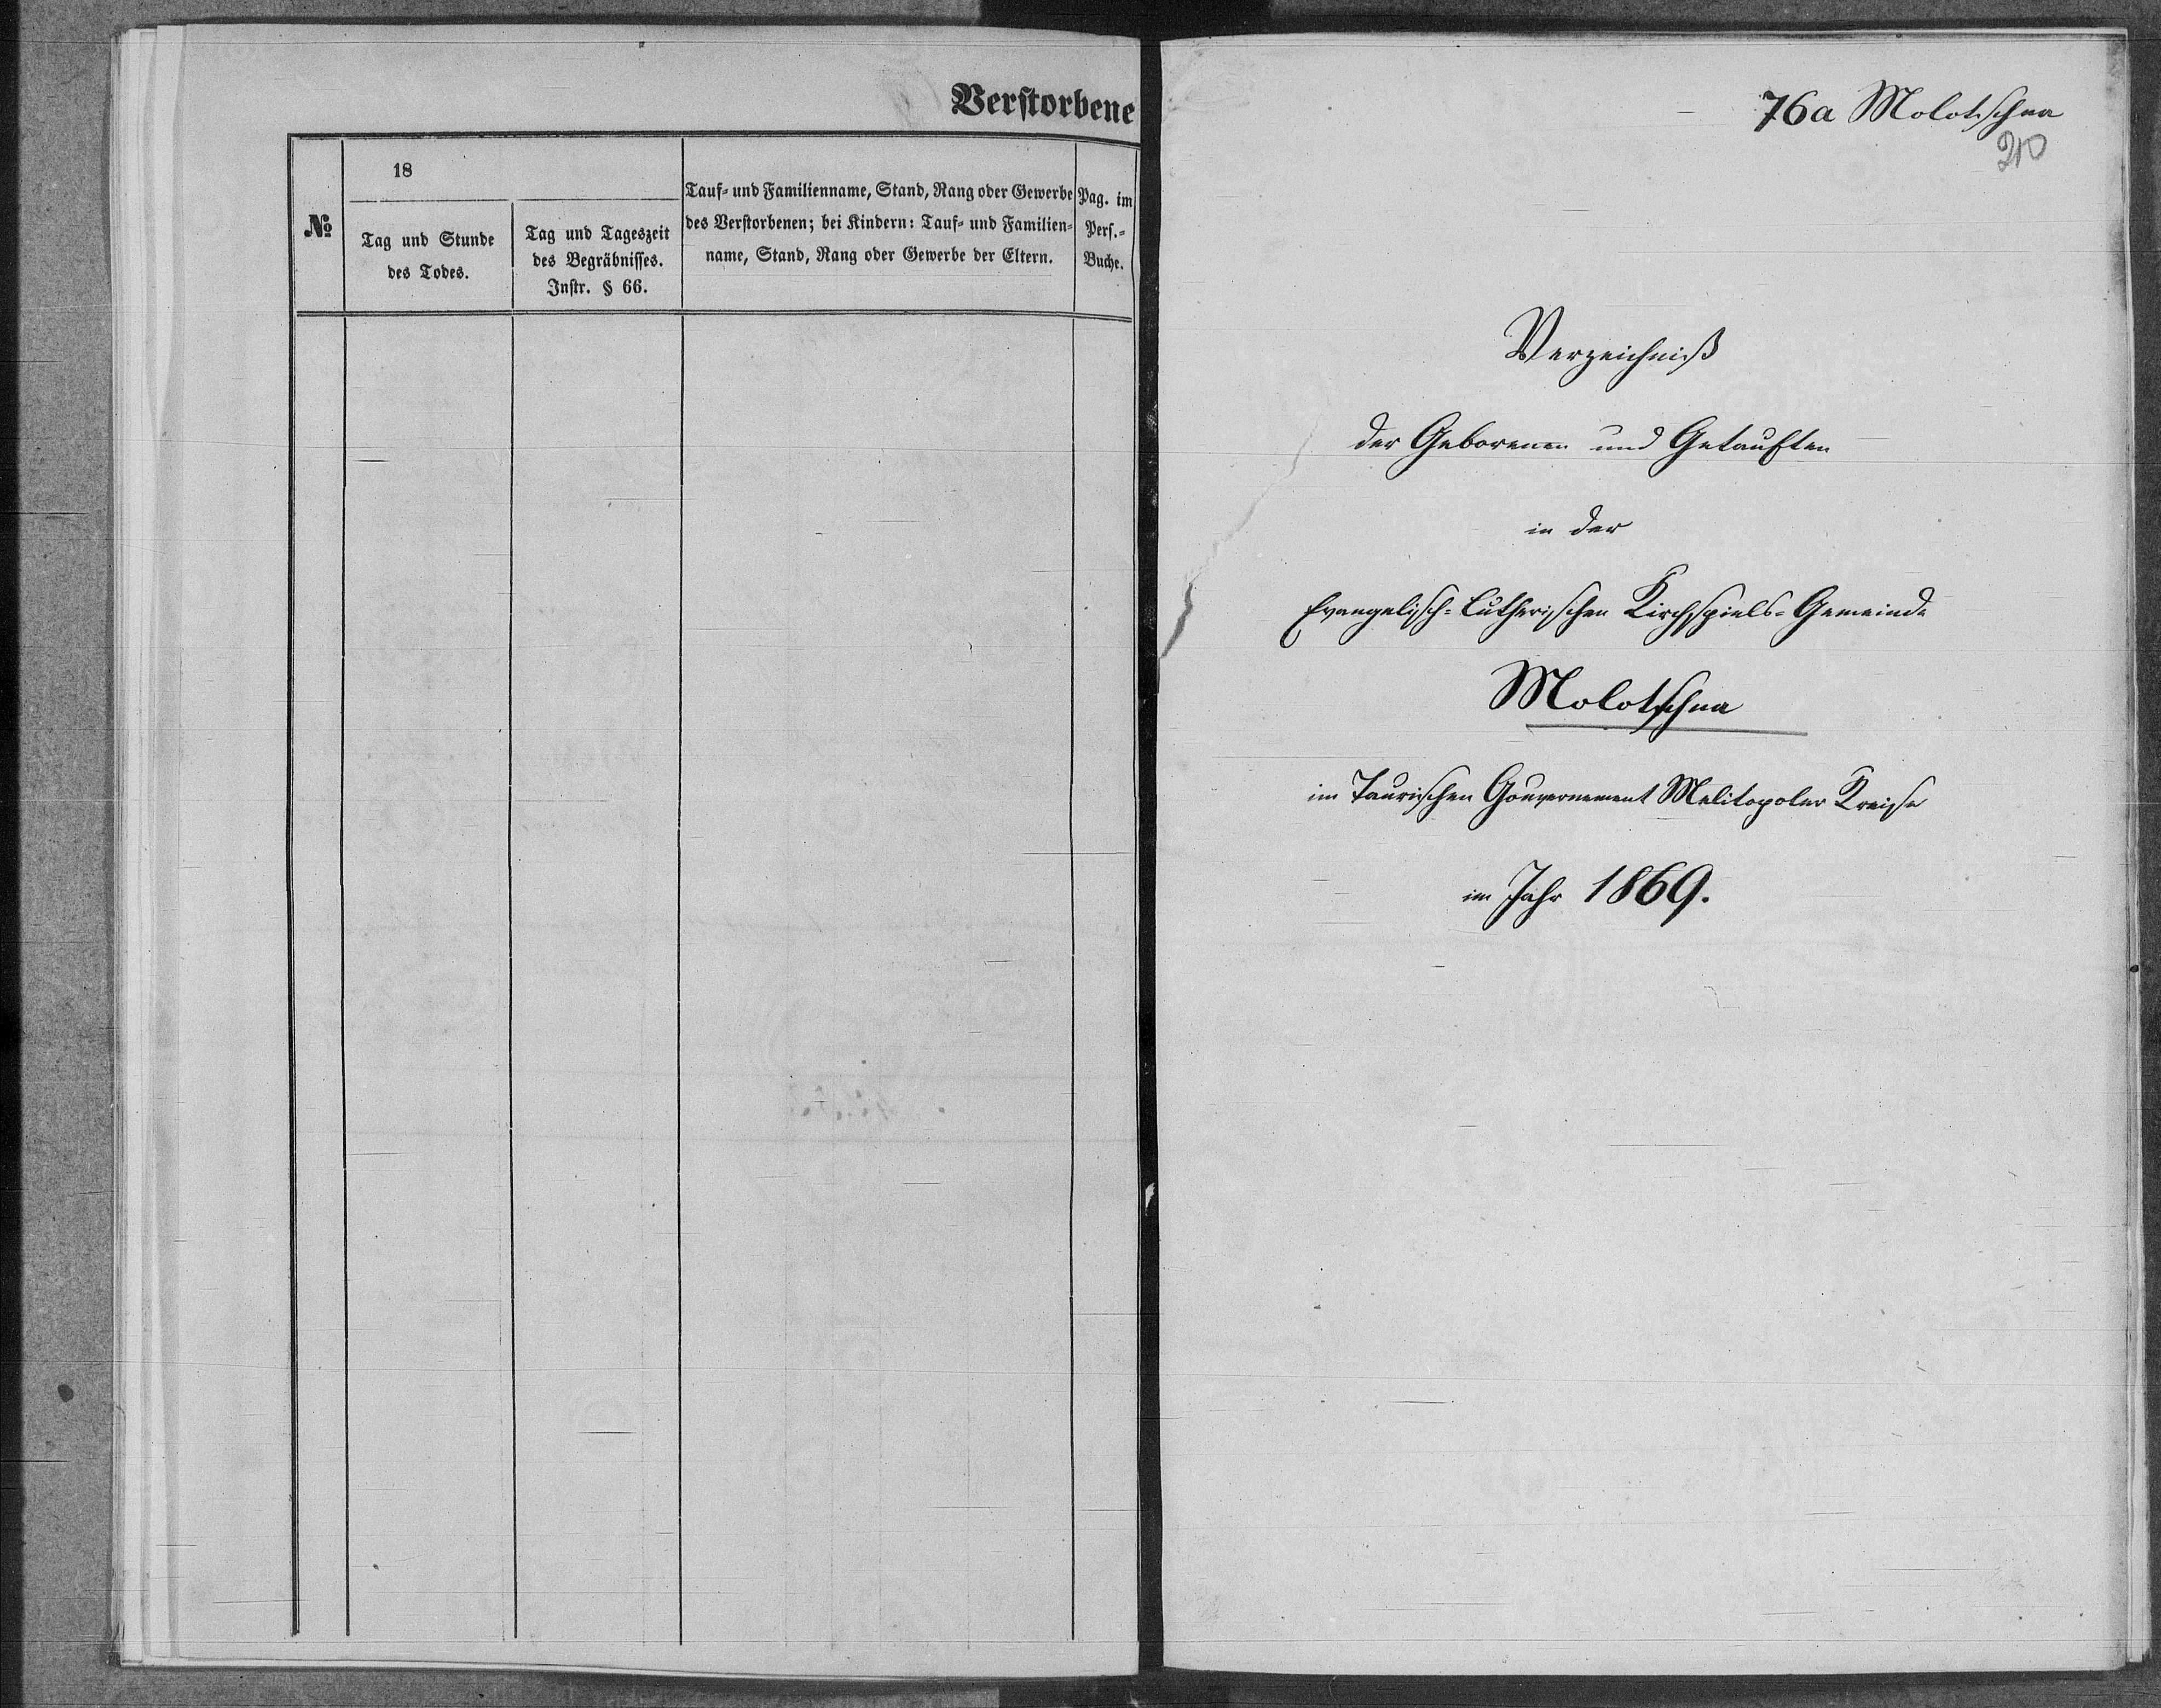 Verstorbene
№
18
Tag und Stunde
des Todes.
Tag und Tageszeit
des Begräbnisses.
Instr. § 66.
Tauf- und Familienname, Stand, Rang oder Gewerbe
des Verstorbenen; bei Kindern: Tauf- und Familien-
name, Stand, Rang oder Gewerbe der Eltern.
Pag. im
Pers.-
Buche.
76a Molotschna
210
Verzeichniß
der Geborenen und Getauften
in der
Evangelisch-Lutherischen Kirchspiels-Gemeinde
Molotschna
im Taurischen Gouvernement Melitopoler Kreise
im Jahr 1869.